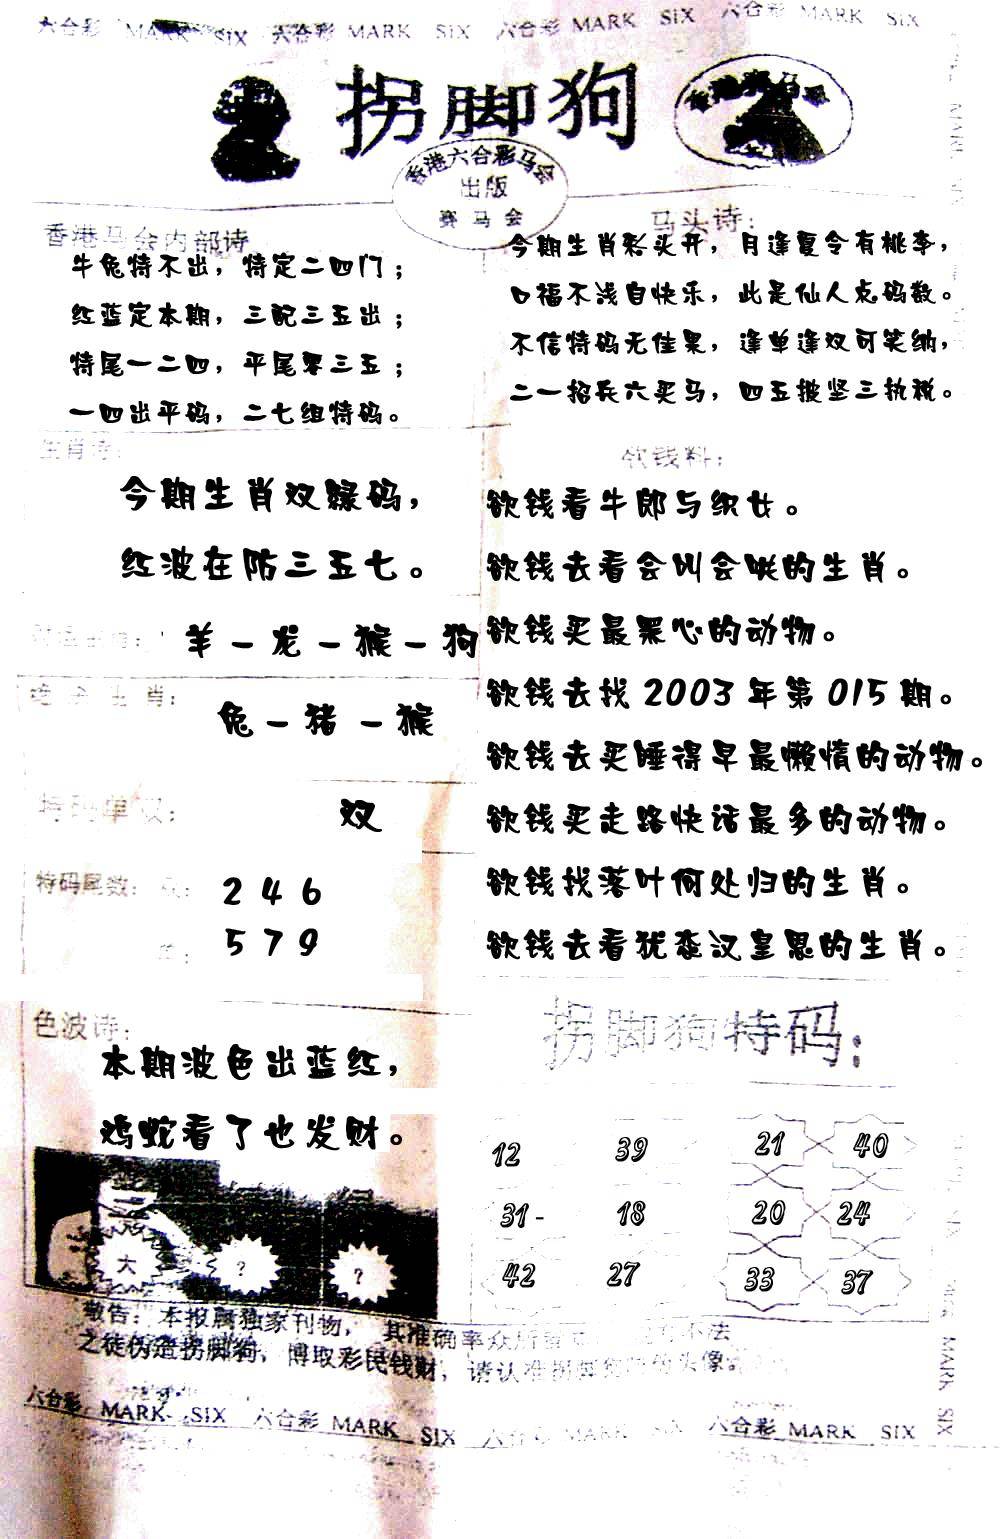 六合彩 MARK SIX 六合彩 MARK SIX 六合彩 MARK SIX 六合彩 MARK SIX
拐脚狗
香港六合彩马会
出版
赛马会
香港马会内部诗
牛兔特不出，特定二四门；
红蓝定本期，三配三五出；
特尾一二四，平尾零三五；
一四出平码，二七组特码。
马头诗：
今期生肖彩头开，月逢夏令有桃李，
口福不浅自快乐，此是仙人点码数。
不信特码无佳果，逢单逢双可笑纳，
二一招兵六买马，四五披坚三执税。
生肖诗：
今期生肖双绿码，
红波在防三五七。
羊－龙－猴－狗
生肖：
兔－猪－猴
特码单双：
双
特码尾数：
2 4 6
5 7 9
色波诗：
本期波色出蓝红，
鸡蛇看了也发财。
大 ? ?
欲钱料：
欲钱看牛郎与织女。
欲钱去看会叫会咲的生肖。
欲钱买最黑心的动物。
欲钱去找 2003 年第 015 期。
欲钱去买睡得早最懒惰的动物。
欲钱买走路快话最多的动物。
欲钱找落叶何处归的生肖。
欲钱去看犹奁汉皇恩的生肖。
拐脚狗特码：
12 39 21 40
31- 18 20 24
42 27 33 37
敬告：本报属独家刊物，其准确率众所 不法
之徒伪造拐脚狗，博取彩民钱财，请认准拐脚 头像
六合彩 MARK SIX 六合彩 MARK SIX 六合彩 MARK SIX 六合彩 MARK SIX
MARK SIX